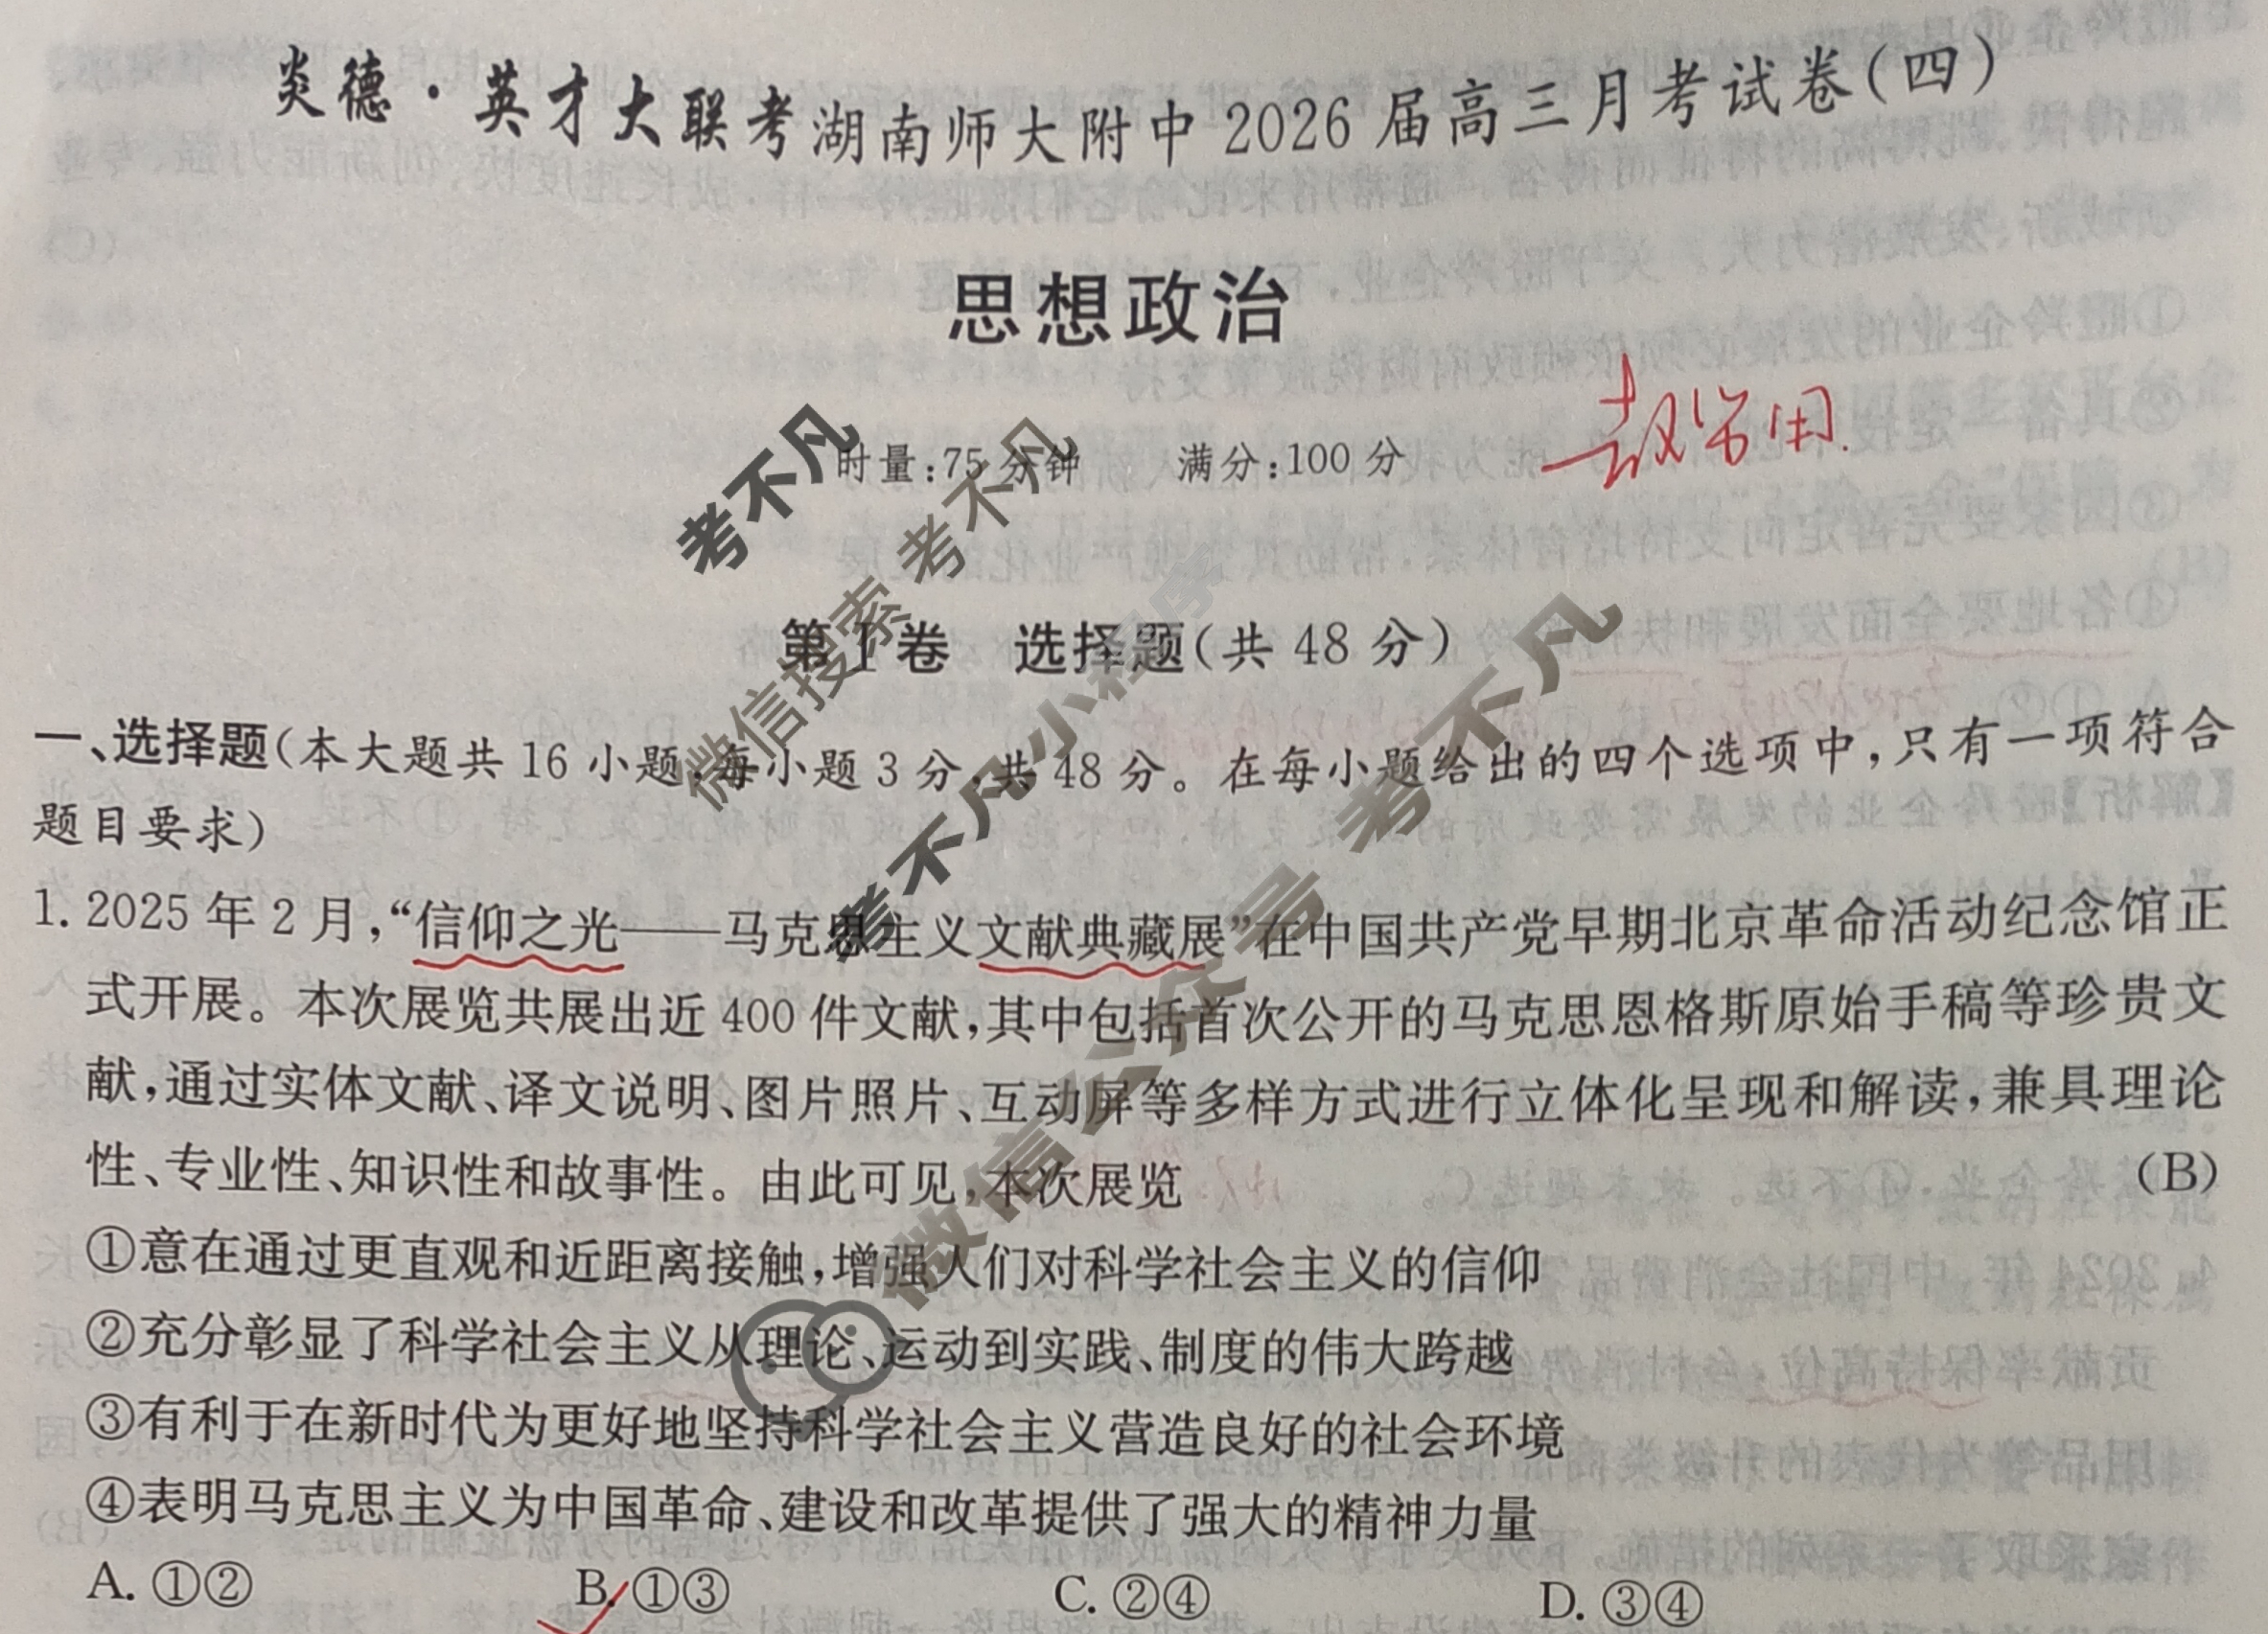 炎德·英才大联考湖南师大附中2026届高三月考试卷(四)
思想政治
教学用.
时量:75分钟 满分:100分
第Ⅰ卷 选择题(共48分)
一、选择题(本大题共16小题,每小题3分,共48分。在每小题给出的四个选项中,只有一项符合
题目要求)
1. 2025年2月,“信仰之光——马克思主义文献典藏展”在中国共产党早期北京革命活动纪念馆正
式开展。本次展览共展出近400件文献,其中包括首次公开的马克思恩格斯原始手稿等珍贵文
献,通过实体文献、译文说明、图片照片、互动屏等多样方式进行立体化呈现和解读,兼具理论
性、专业性、知识性和故事性。由此可见,本次展览 (B)
①意在通过更直观和近距离接触,增强人们对科学社会主义的信仰
②充分彰显了科学社会主义从理论、运动到实践、制度的伟大跨越
③有利于在新时代为更好地坚持科学社会主义营造良好的社会环境
④表明马克思主义为中国革命、建设和改革提供了强大的精神力量
A. ①② B. ①③ C. ②④ D. ③④
考不凡
微信搜索 考不凡
考不凡小程序
微信公众号 考不凡